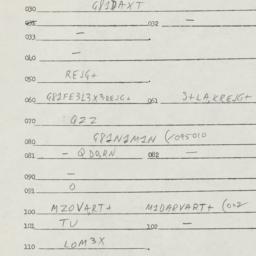 030 G81DAXT
031 032 -
033 -
040 -
050 RESG+
060 G81FE3L3X3RESG+ 061 3+LA,KRESG+
070 QZZ
080 G81N1M1N (/095010
081 - QDO,RN 082 -
090 -
091 0
100 MZOVART+ M1DARVART+ (002
101 TU 102 -
110 LOM3X